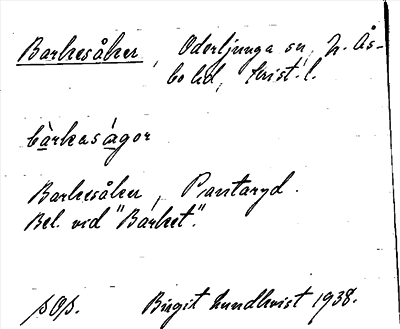 Barkesåker, Oderljunga sn, N. Ås-
bo hd, krist. l.
bàrkaságor
Barkesåker, Pantaryd.
Bel. vid "Barket".
sOp. Birgit Lundkvist 1938.